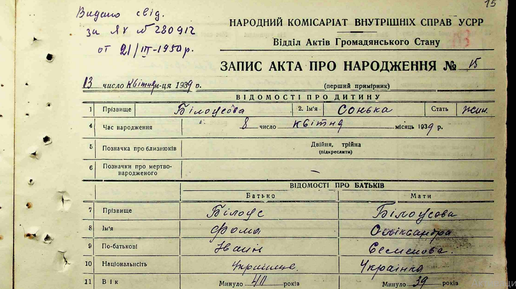 15
Видано свід.
за ЯХ № 280912
от 21/III-1950 р.
НАРОДНИЙ КОМІСАРІАТ ВНУТРІШНІХ СПРАВ УСРР
Відділ Актів Громадянського Стану
ЗАПИС АКТА ПРО НАРОДЖЕННЯ № 15
13 число квітня м-ця 1939 г. (перший примірник)
ВІДОМОСТІ ПРО ДИТИНУ
1 Прізвище Білоусова 2. Ім'я Сонька Стать жін.
4 Час народження 8 число квітня місяць 1939 г.
5 Позначка про близнюків Двійня, трійня
(підкреслити)
6 Позначки про мертво-
народженого
ВІДОМОСТІ ПРО БАТЬКІВ
Батько Мати
7 Прізвище Білоус Білоусова
8 Ім'я Фома Олександра
9 По-батькові Іванов Семенова
10 Національність Українец Українка
11 Вік Минуло 40 років Минуло 39 років